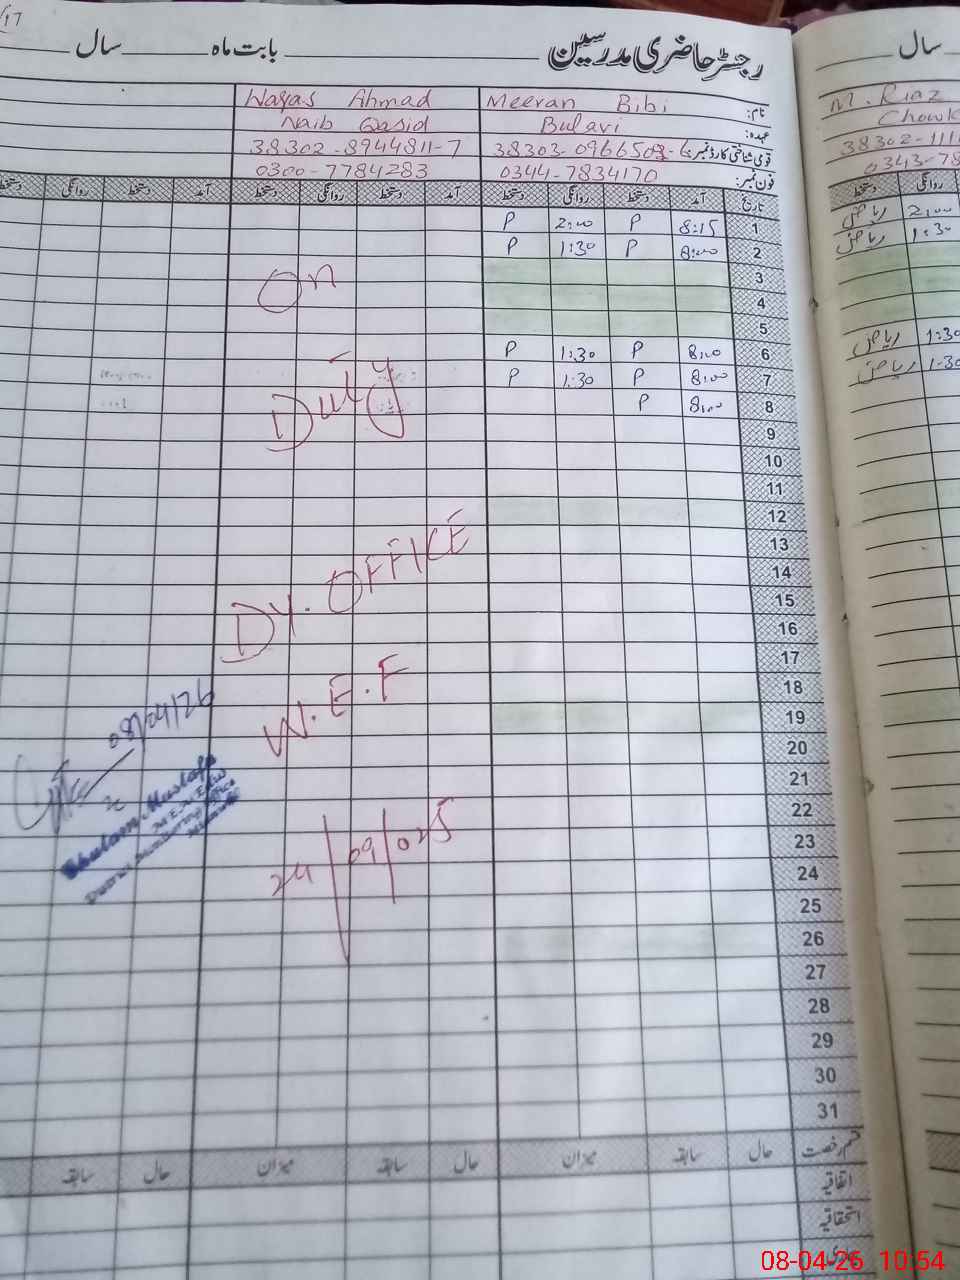 رجسٹر حاضری مدرسین بابت ماہ سال
سال
نام: Meeran Bibi
Waqas Ahmad
M. Riaz
عہدہ: Bulavi
Naib Qasid
Chowk
قومی شناختی کارڈ نمبر: 38303-0966503-6
38302-8944811-7
38302-111
فون نمبر: 0344-7834170
0300-7784283
0343-78
تاریخ آمد دستخط روانگی دستخط آمد دستخط روانگی دستخط آمد دستخط روانگی
روانگی دستخط
1 8:15 P 2:00 P
2:00 ریاض
2 8:00 P 1:30 P
1:30 ریاض
3
4
5
6 8:00 P 1:30 P
1:30 ریاض
7 8:00 P 1:30 P
1:30 ریاض
8 8:00 P
9
10
11
12
13
14
15
16
17
18
19
20
21
22
23
24
25
26
27
28
29
30
31
On
Duty
DY. OFFICE
W.E.F
24/09/025
08/04/26
Ghulam Mustafa
قسم رخصت حال سابقہ میزان حال سابقہ میزان حال سابقہ
اتفاقیہ
استحقاقیہ
08-04-26 10:54